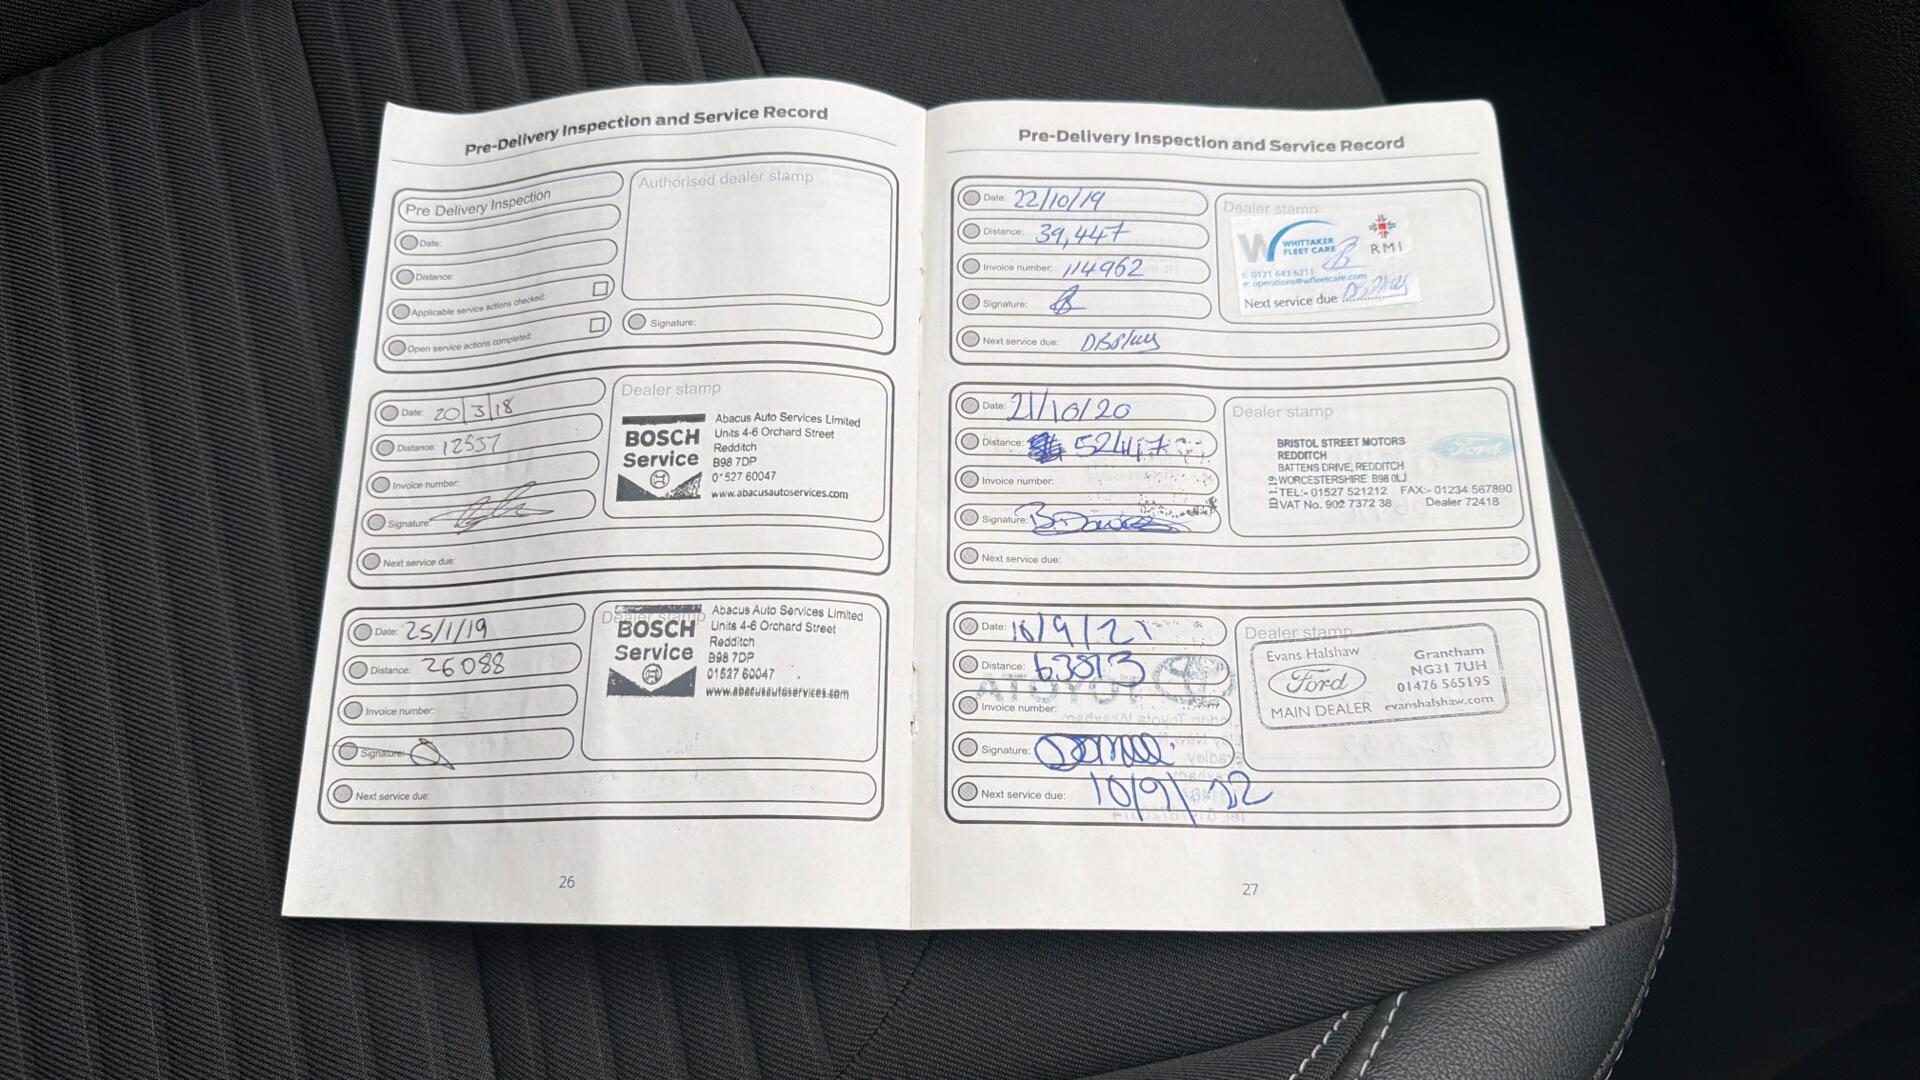 Pre-Delivery Inspection and Service Record
Pre Delivery Inspection
Date:
Distance:
Applicable service actions checked:
Open service actions completed:
Authorised dealer stamp
Signature:
Date: 20/3/18
Distance: 12537
Invoice number:
Signature:
Next service due:
Dealer stamp
BOSCH
Service
Abacus Auto Services Limited
Units 4-6 Orchard Street
Redditch
B98 7DP
01527 60047
www.abacusautoservices.com
Date: 25/1/19
Distance: 26088
Invoice number:
Signature:
Next service due:
Dealer stamp
BOSCH
Service
Abacus Auto Services Limited
Units 4-6 Orchard Street
Redditch
B98 7DP
01527 60047
www.abacusautoservices.com
26
Pre-Delivery Inspection and Service Record
Date: 22/10/19
Distance: 39,447
Invoice number: 114962
Signature:
Next service due:
Dealer stamp
W WHITTAKER
FLEET CARE
RMI
t: 0121 643 6211
e: operations@wfleetcare.com
Next service due
Date: 21/10/20
Distance: 52447
Invoice number:
Signature:
Next service due:
Dealer stamp
BRISTOL STREET MOTORS
REDDITCH
BATTENS DRIVE, REDDITCH
WORCESTERSHIRE B98 0LJ
TEL:- 01527 521212 FAX:- 01234 567890
VAT No. 902 7372 38 Dealer 72418
Ford
Date: 10/9/21
Distance: 63813
Invoice number:
Signature:
Next service due: 10/9/22
Dealer stamp
Evans Halshaw
Ford
MAIN DEALER
Grantham
NG31 7UH
01476 565195
evanshalshaw.com
TOYOTA
27